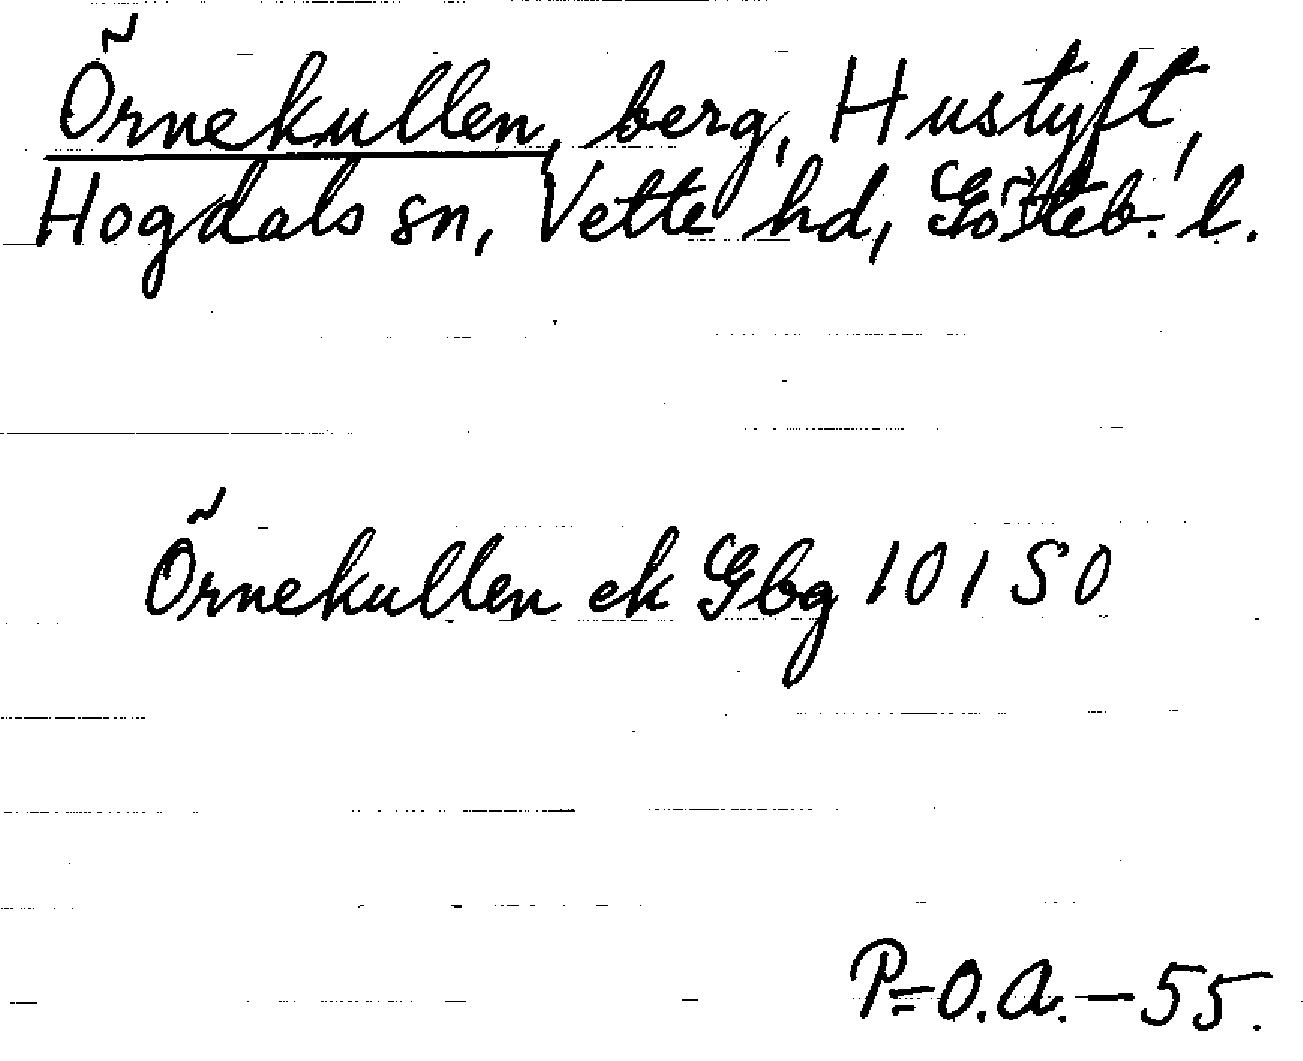 Örnekullen, berg, Hustyft,
Hogdals sn, Vette hd, Göteb. l.
Örnekullen ek Gbg 10150
P=O.A.-55.